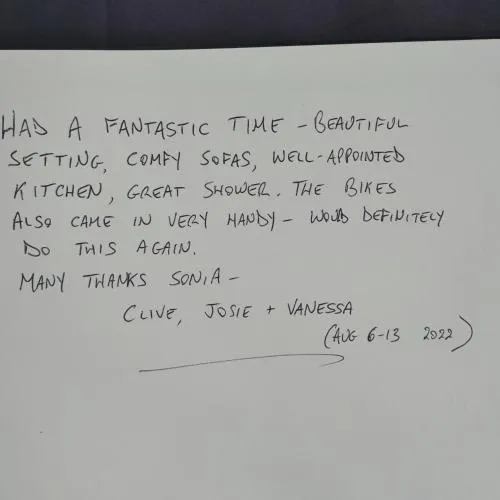 HAD A FANTASTIC TIME – BEAUTIFUL
SETTING, COMFY SOFAS, WELL-APPOINTED
KITCHEN, GREAT SHOWER. THE BIKES
ALSO CAME IN VERY HANDY – WOULD DEFINITELY
DO THIS AGAIN.
MANY THANKS SONIA –
CLIVE, JOSIE + VANESSA
(AUG 6-13 2022)